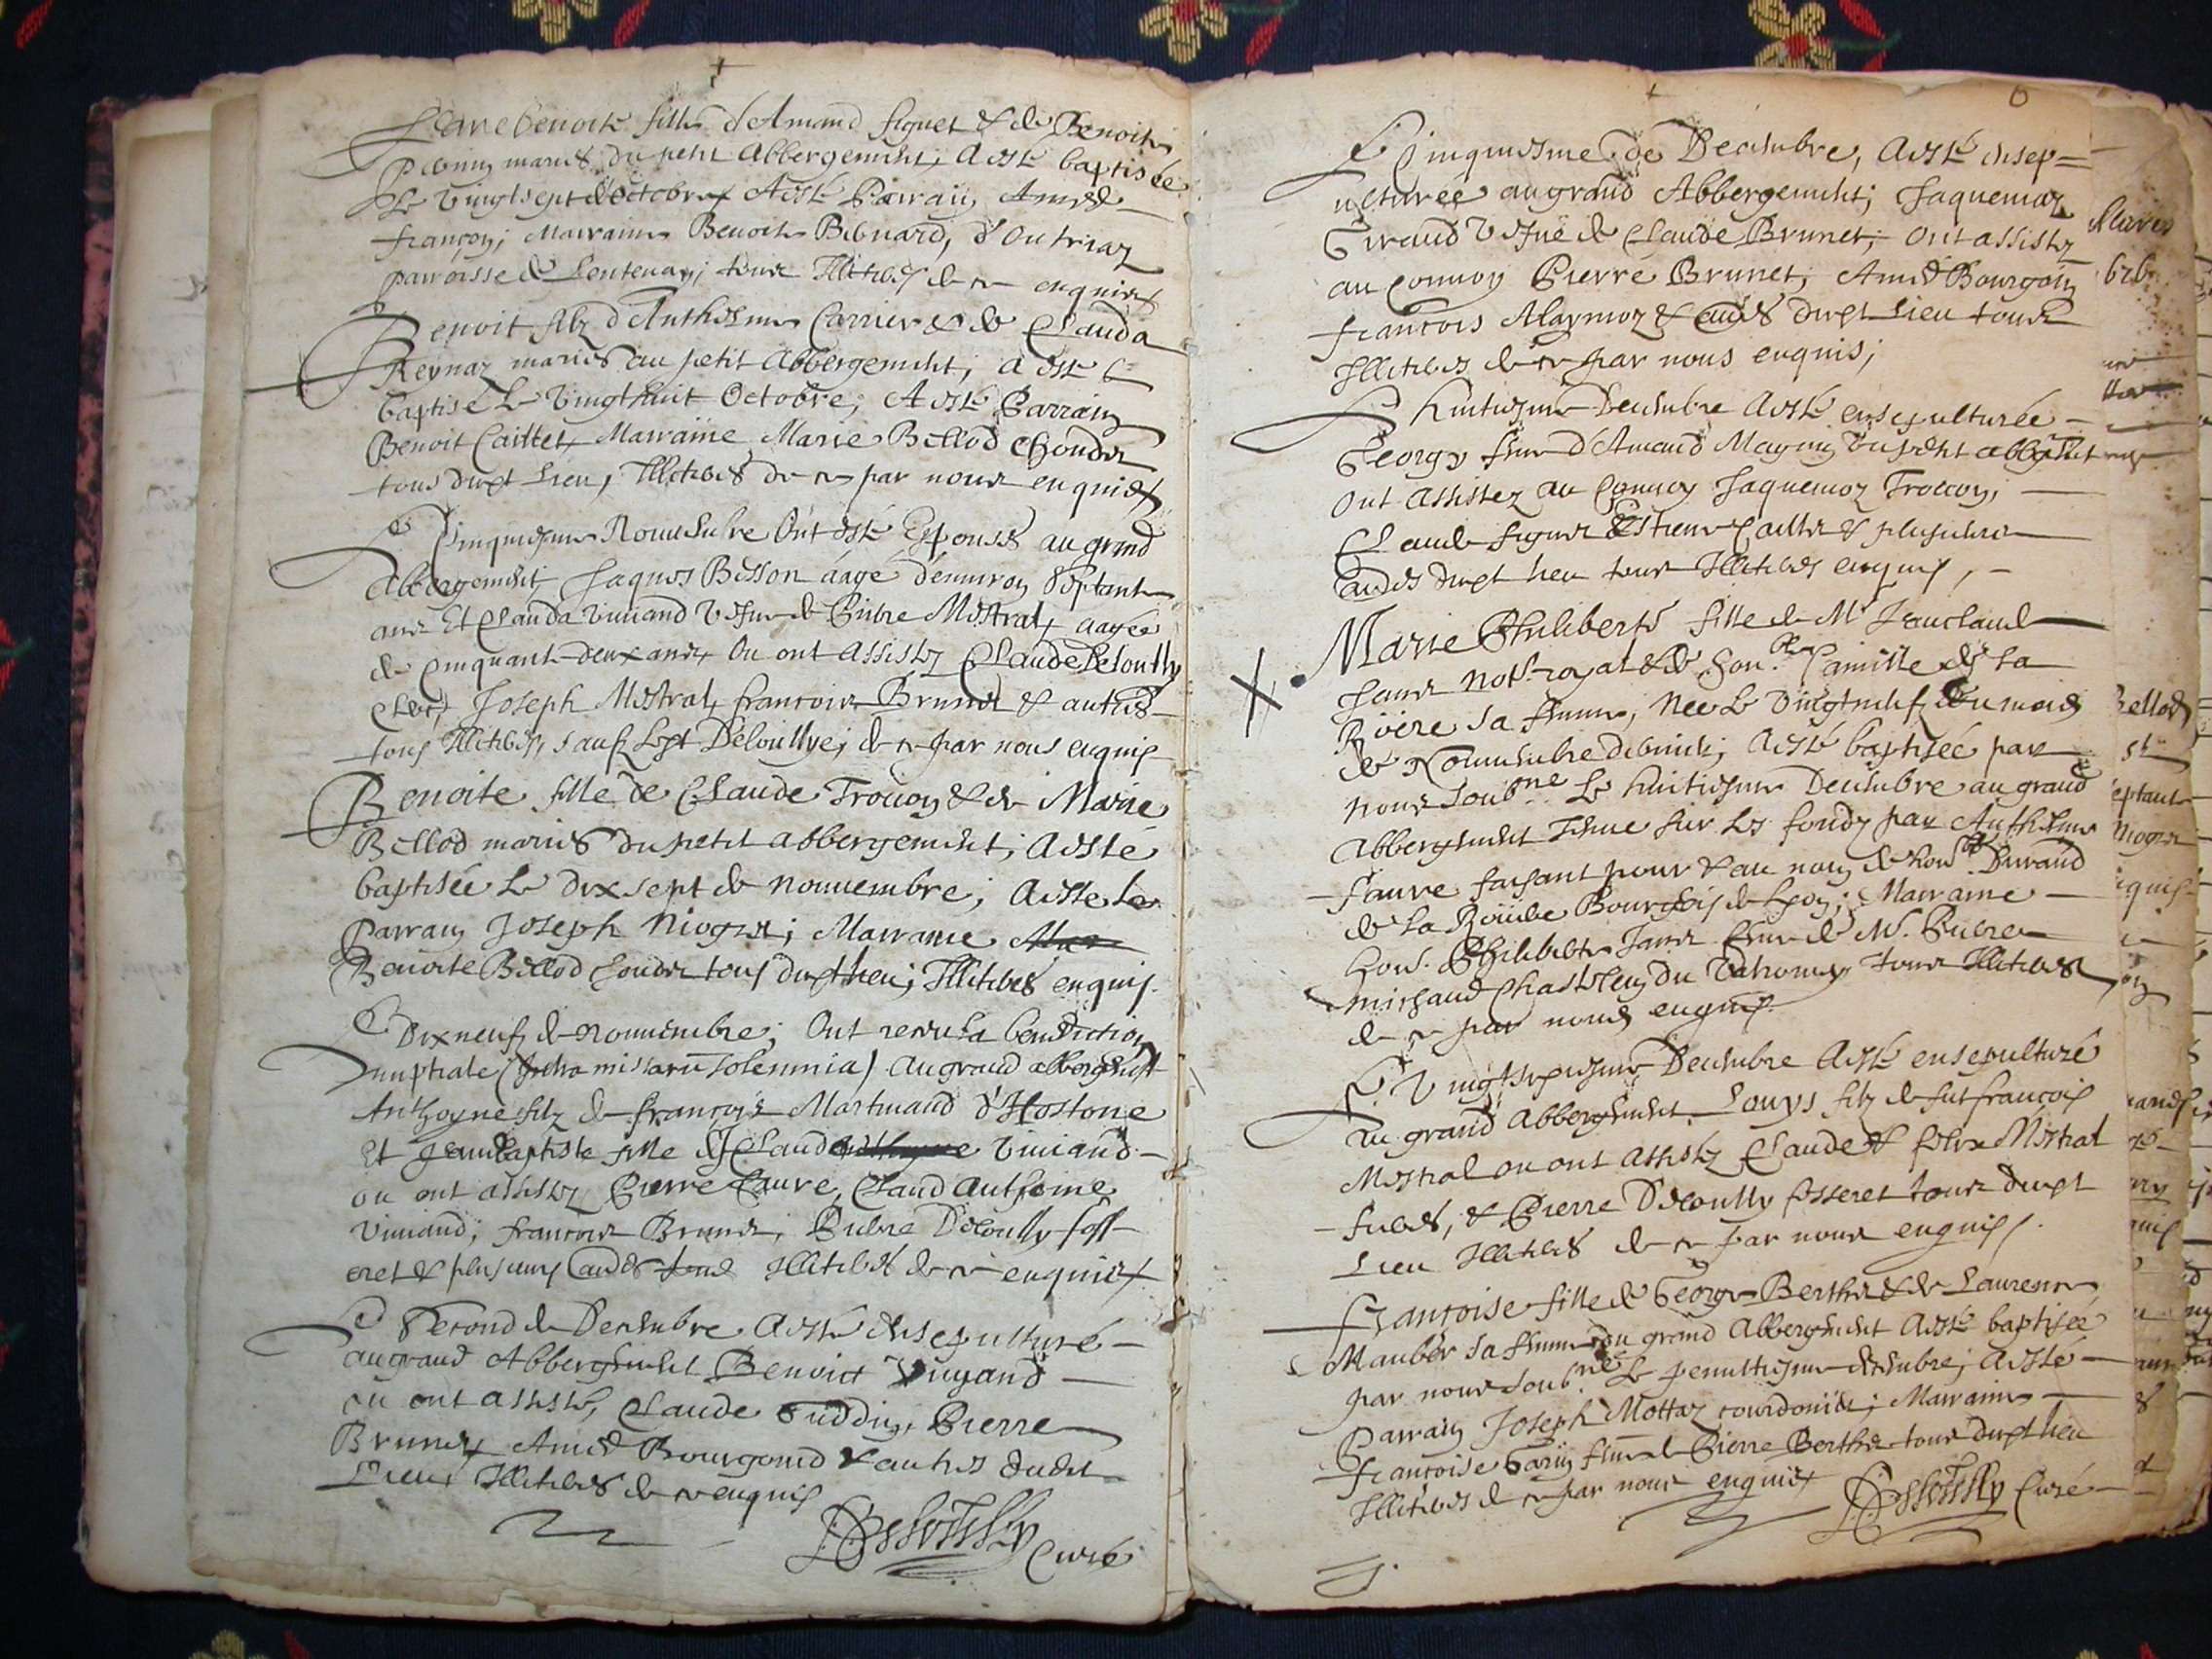 Jeane benoite fille d'Amand figuet & de Benoite
maries du petit Abbergement, a esté baptisée
Le vingtsept d'octobre, A esté Parrain Amed
françon; Marraine Benoite Bernard, d'Outriaz
parroisse de Lentenay; tous Illiteres de ce enquis
Benoit filz d'Anthesme Carrier & de Clauda
Reynaz maries au petit abbergement; a esté
baptisé Le vingthuit Octobre; A esté Parrain
Benoit Caillet, Marraine Marie Bellod Chonder
tous dudt Lieu, Illiteres de ce par nous enquis
Le Cinquiesme Novembre Ont esté Espousés au grand
Abbergement, Jaques Besson aagé d'environ Septante
ans Et Clauda Viviand vefve de Pierre Mestral, aagée
de cinquante deux ans, Ou ont assistez Claude Deloully
Clerc, Joseph Mestral, francois Brunet & autres
tous Illiteres, sauf Ledt Deloullye; de ce par nous enquis
Benoite fille de Claude Trocon & de Marie
Bellod maries du petit abbergement; a esté
baptisée Le dix sept de novembre; a esté Le
Parrain Joseph Niogret; Marraine
Benoite Bellod Chonder tous dudt lieu; Illiteres enquis.
Le Dix neuf de novembre; Ont receu La benediction
nuptiale (Intra missaru solemnia) au grand abbergemt
Anthoyne filz de françois Martinand d'Hostone
Et Jeanbaptiste fille de Claud Viviand
ou ont assistez Pierre Favre, Claud Anthoine
Viviand; francois Brunet, Pierre Deloully foss
eret & plusieurs autres tous Illiteres de ce enquis
Le Second de Decembre a esté ensepulturé
au grand Abbergement Benoict Viviand
ou ont assisté, Claude Pierre
Brunet, Amed Bourgoind & autres dudit
Lieu, Illiteres de ce enquis
Deloully Curé
Le Cinquiesme de Decembre, a esté ensep=
ulturée au grand Abbergement; Jaquemaz
Giraud vefue de Claude Brunet; ont assistez
au convoy Pierre Brunet, Amed Bourgoin
francois Maymoz & autres dudt Lieu tous
Illiteres de ce par nous enquis;
Le huitiesme Decembre a esté ensepulturée
George feme d'Amand Magnin du petit abbgemt
ont assistez au convoy Jaquemoz Trocon,
Claude figuet Estiene Caillet & plusieurs
autres dudt lieu tous Illiteres enquis,
Marie Philiberte fille de Mr Jeanclaude
Janer notre. royal & de hon.ble Camille de La
Rivere sa femme, Née Le vingtneuf du mois
de Novembre dernier; a esté baptisée par
nous soub.ne Le huitiesme Decembre au grand
abbergement Tenue sur Les fondz par Anthelme
favre faisant pour & au nom de hon.ble Durand
de La Rouiere Bourgeois de Lyon; Marraine
hon. Philiberte Janer feme de Mr. Pierre
Michaud Chastelein du Valromey tous Illiteres
de ce par nous enquis.
Le Vingtsepiesme Decembre a esté ensepulturé
au grand Abbergement Louys filz de fut francois
Mestral ou ont assistez Claude & felix Mestral
freres, & Pierre Deloully fosseret tous dudt
Lieu Illiteres de ce par nous enquis.
Françoise fille de George Berthet & de Laurence
Mauber sa femme du grand Abbergement a esté baptisée
par nous soub.né Le penultiesme decembre; a esté
Parrain Joseph Mottaz courdonier; Marraine
francoise Garin feme de Pierre Berthet tous dudt lieu
Illiteres de ce par nous enquis
Deloully Curé